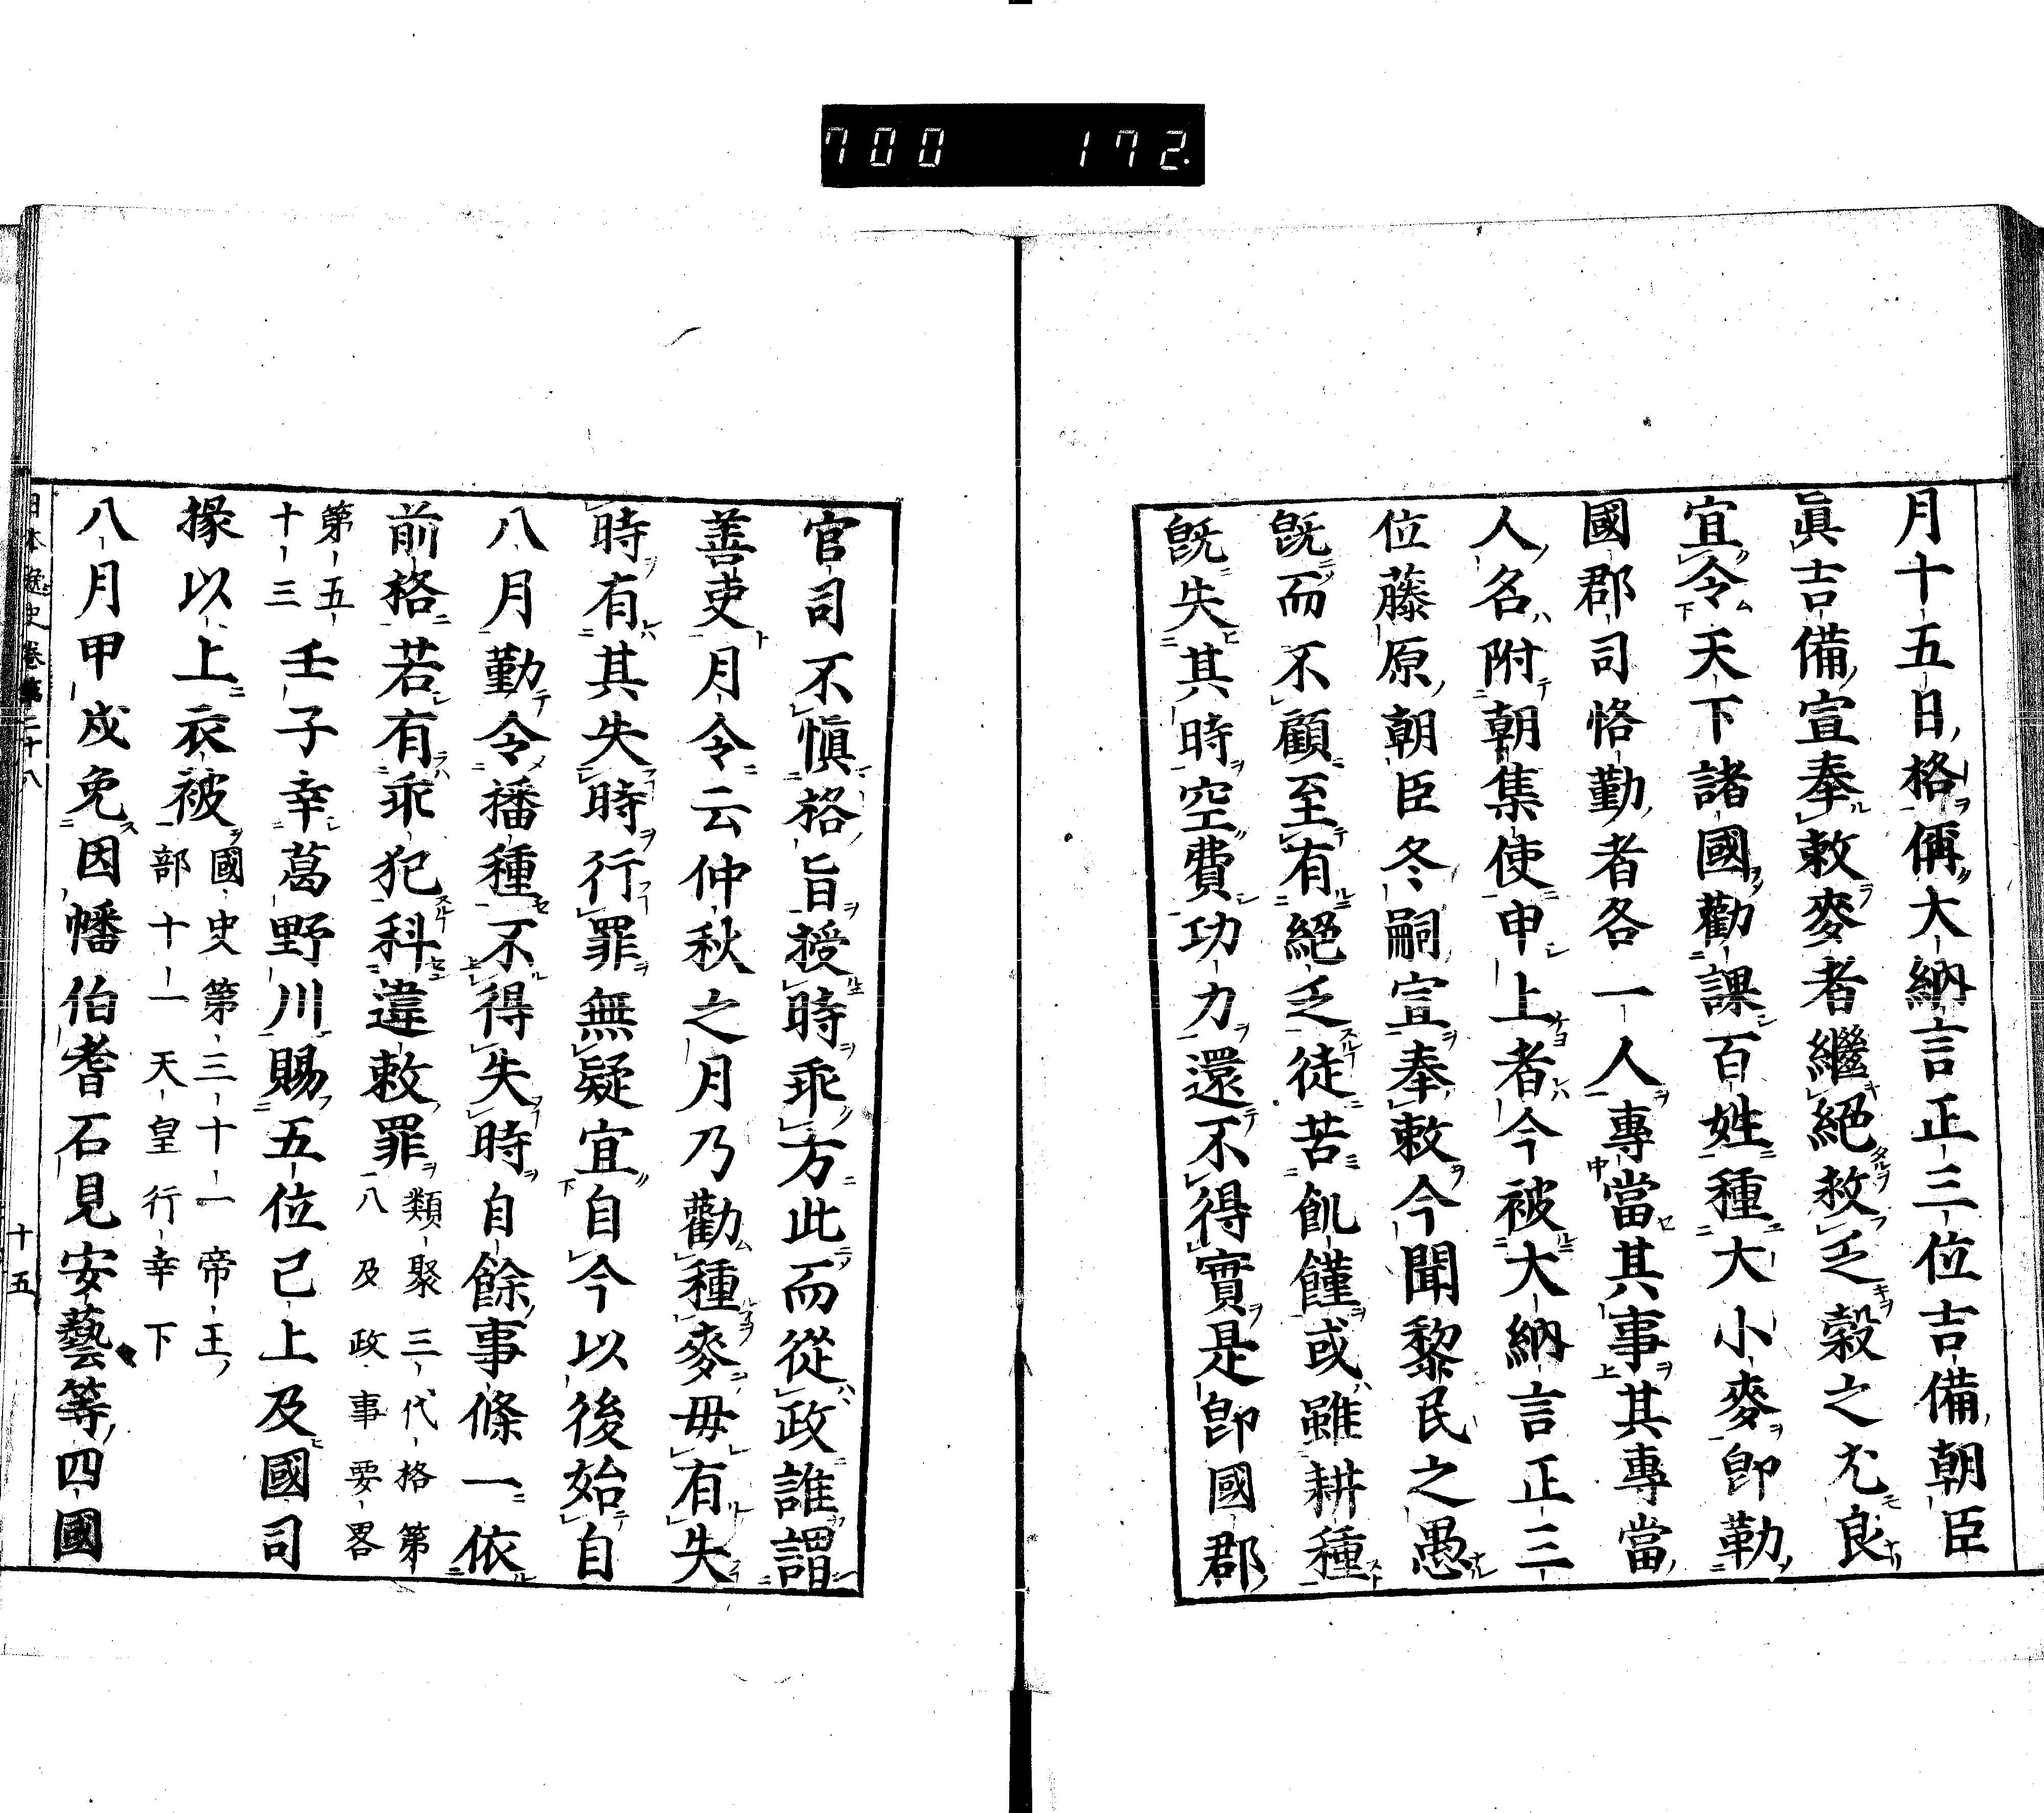 700 172.
月十五日格偁大納言正三位吉備朝臣
眞吉備宣奉敕麥者繼絕救乏穀之尤良
宜令天下諸國勸課百姓種大小麥卽勒
國郡司恪勤者各一人專當其事其專當
人名附朝集使申上者今被大納言正三
位藤原朝臣冬嗣宣奉敕今聞黎民之愚
旣而不顧至有絕乏徒苦飢饉或雖耕種
旣失其時空費功力還不得實是卽國郡
官司不愼格旨授時乖方此而從政誰謂
善吏月令云仲秋之月乃勸種麥毋有失
時有其失時行罪無疑宜自今以後始自
八月勤令播種不得失時自餘事條一依
前格若有乖犯科違敕罪類聚三代格第
八及政事要畧
第五
十三壬子幸葛野川賜五位已上及國司
掾以上衣被國史第三十一帝王
部十一天皇行幸下
八月甲戌免因幡伯耆石見安藝等四國
日本逸史卷第二十八 十五